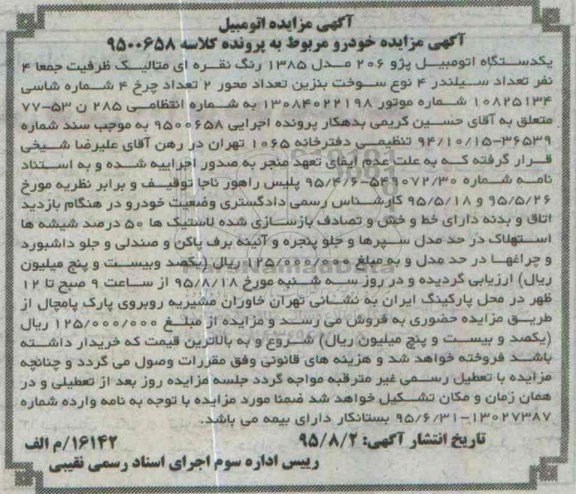 آگهی مزایده اتومبیل
آگهی مزایده خودرو مربوط به پرونده کلاسه ۹۵۰۰۶۵۸
یکدستگاه اتومبیل پژو ۲۰۶ مدل ۱۳۸۵ رنگ نقره ای متالیک ظرفیت جمعا ۴
نفر تعداد سیلندر ۴ نوع سوخت بنزین تعداد محور ۲ تعداد چرخ ۴ شماره شاسی
۱۰۸۲۵۱۳۴ شماره موتور ۱۳۰۸۴۰۲۲۱۹۸ به شماره انتظامی ۲۸۵ ن ۵۳-۷۷
متعلق به آقای حسین کریمی بدهکار پرونده اجرایی ۹۵۰۰۶۵۸ به موجب سند شماره
۳۶۵۳۹-۹۴/۱۰/۱۵ تنظیمی دفترخانه ۱۰۶۵ تهران در رهن آقای علیرضا شیخی
قرار گرفته که به علت عدم ایفای تعهد منجر به صدور اجراییه شده و به استناد
نامه شماره ۵۴۹۰۷۲/۳۰-۹۵/۴/۶ پلیس راهور ناجا توقیف و برابر نظریه مورخ
۹۵/۵/۲۶ و ۹۵/۵/۱۸ کارشناس رسمی دادگستری وضعیت خودرو در هنگام بازدید
اتاق و بدنه دارای خط و خش و تصادف بازسازی شده لاستیک ها ۵۰ درصد شیشه ها
استهلاک در حد مدل سپرها و جلو پنجره و آئینه برف پاکن و صندلی و جلو داشبورد
و چراغها در حد مدل و به مبلغ ۱۲۵/۰۰۰/۰۰۰ ریال (یکصد وبیست و پنج میلیون
ریال) ارزیابی گردیده و در روز سه شنبه مورخ ۹۵/۸/۱۸ از ساعت ۹ صبح تا ۱۲
ظهر در محل پارکینگ ایران به نشانی تهران خاوران مشیریه روبروی پارک پامچال از
طریق مزایده حضوری به فروش می رسد و مزایده از مبلغ ۱۲۵/۰۰۰/۰۰۰ ریال
(یکصد و بیست و پنج میلیون ریال) شروع و به بالاترین قیمت که خریدار داشته
باشد فروخته خواهد شد و هزینه های قانونی وفق مقررات وصول می گردد و چنانچه
مزایده با تعطیل رسمی غیر مترقبه مواجه گردد جلسه مزایده روز بعد از تعطیلی و در
همان زمان و مکان تشکیل خواهد شد ضمنا مورد مزایده با توجه به نامه وارده شماره
۱۳۰۲۷۳۸۷-۹۵/۶/۳۱ بستانکار دارای بیمه می باشد.
تاریخ انتشار آگهی: ۹۵/۸/۲
۱۶۱۴۲/م الف
رییس اداره سوم اجرای اسناد رسمی نقیبی